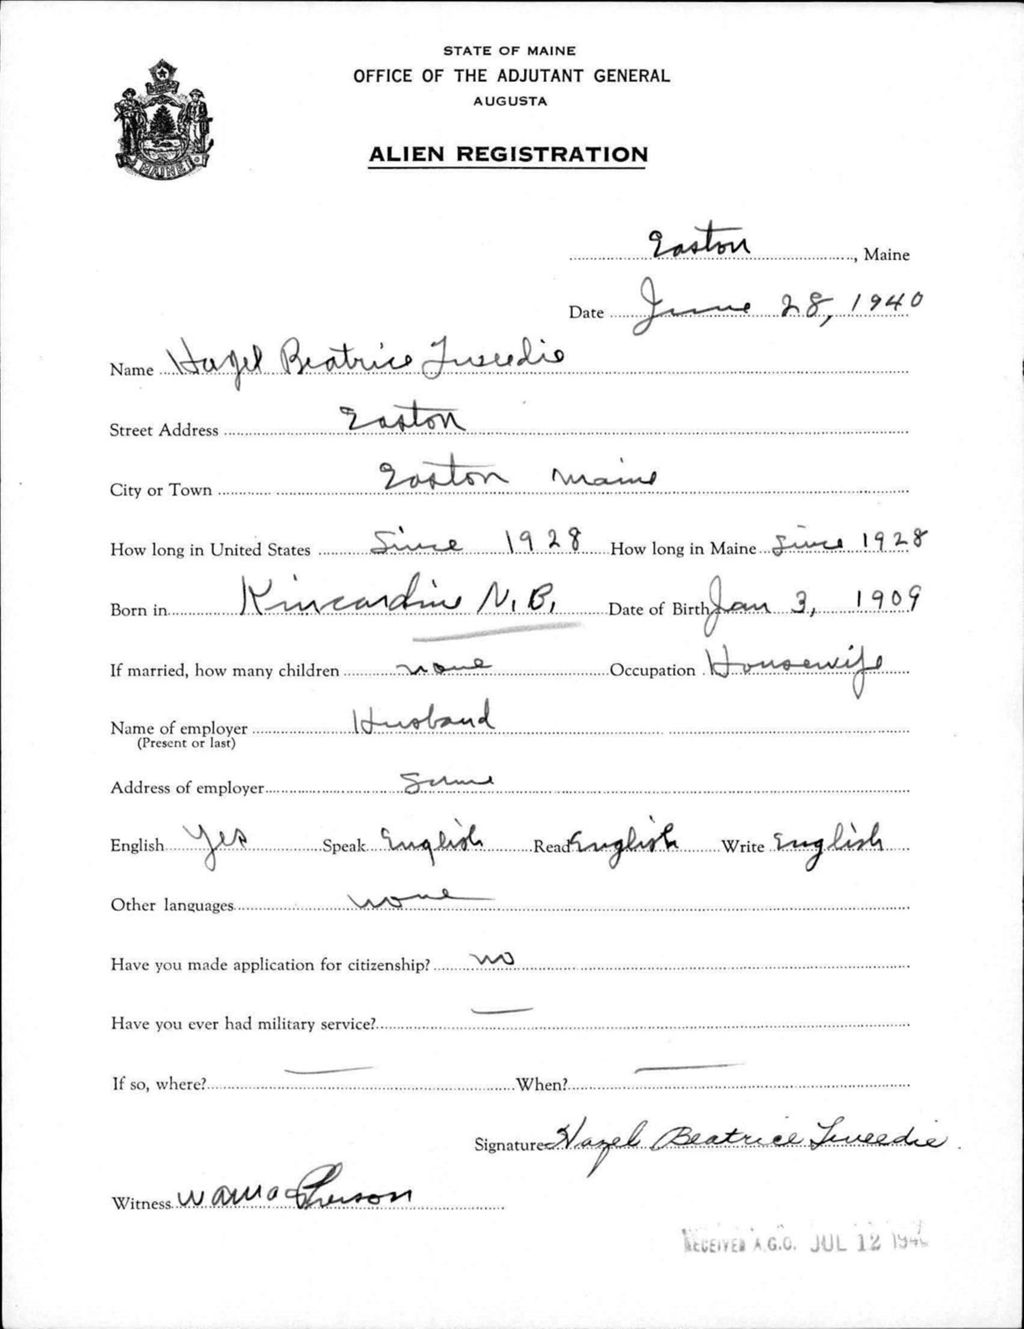 STATE OF MAINE
OFFICE OF THE ADJUTANT GENERAL
AUGUSTA
ALIEN REGISTRATION
MAINE
Easton, Maine
Date June 28, 1940
Name Hazel Beatrice Tweedie
Street Address Easton
City or Town Easton Maine
How long in United States Since 1928 How long in Maine Since 1928
Born in Kincardine N.B. Date of Birth Jan 3, 1909
If married, how many children none Occupation Housewife
Name of employer Husband
(Present or last)
Address of employer Same
English Yes Speak English Read English Write English
Other languages none
Have you made application for citizenship? no
Have you ever had military service? —
If so, where? — When? —
Signature Hazel Beatrice Tweedie
Witness
RECEIVED A.G.O. JUL 12 1940